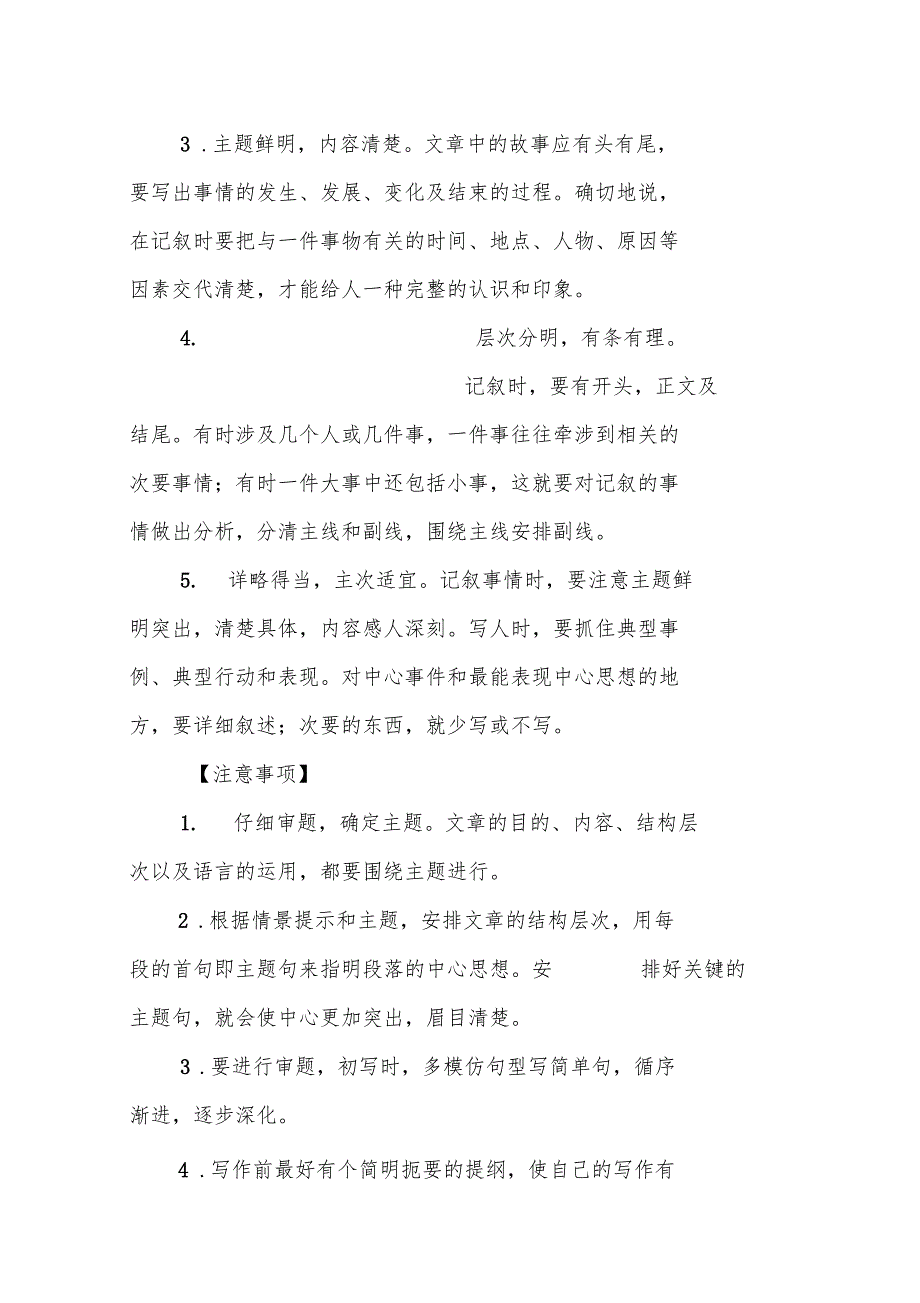 3 .主题鲜明，内容清楚。文章中的故事应有头有尾，
要写出事情的发生、发展、变化及结束的过程。确切地说，
在记叙时要把与一件事物有关的时间、地点、人物、原因等
因素交代清楚，才能给人一种完整的认识和印象。
4. 层次分明，有条有理。
记叙时，要有开头，正文及
结尾。有时涉及几个人或几件事，一件事往往牵涉到相关的
次要事情；有时一件大事中还包括小事，这就要对记叙的事
情做出分析，分清主线和副线，围绕主线安排副线。
5. 详略得当，主次适宜。记叙事情时，要注意主题鲜
明突出，清楚具体，内容感人深刻。写人时，要抓住典型事
例、典型行动和表现。对中心事件和最能表现中心思想的地
方，要详细叙述；次要的东西，就少写或不写。
【注意事项】
1. 仔细审题，确定主题。文章的目的、内容、结构层
次以及语言的运用，都要围绕主题进行。
2 .根据情景提示和主题，安排文章的结构层次，用每
段的首句即主题句来指明段落的中心思想。安 排好关键的
主题句，就会使中心更加突出，眉目清楚。
3 .要进行审题，初写时，多模仿句型写简单句，循序
渐进，逐步深化。
4 .写作前最好有个简明扼要的提纲，使自己的写作有